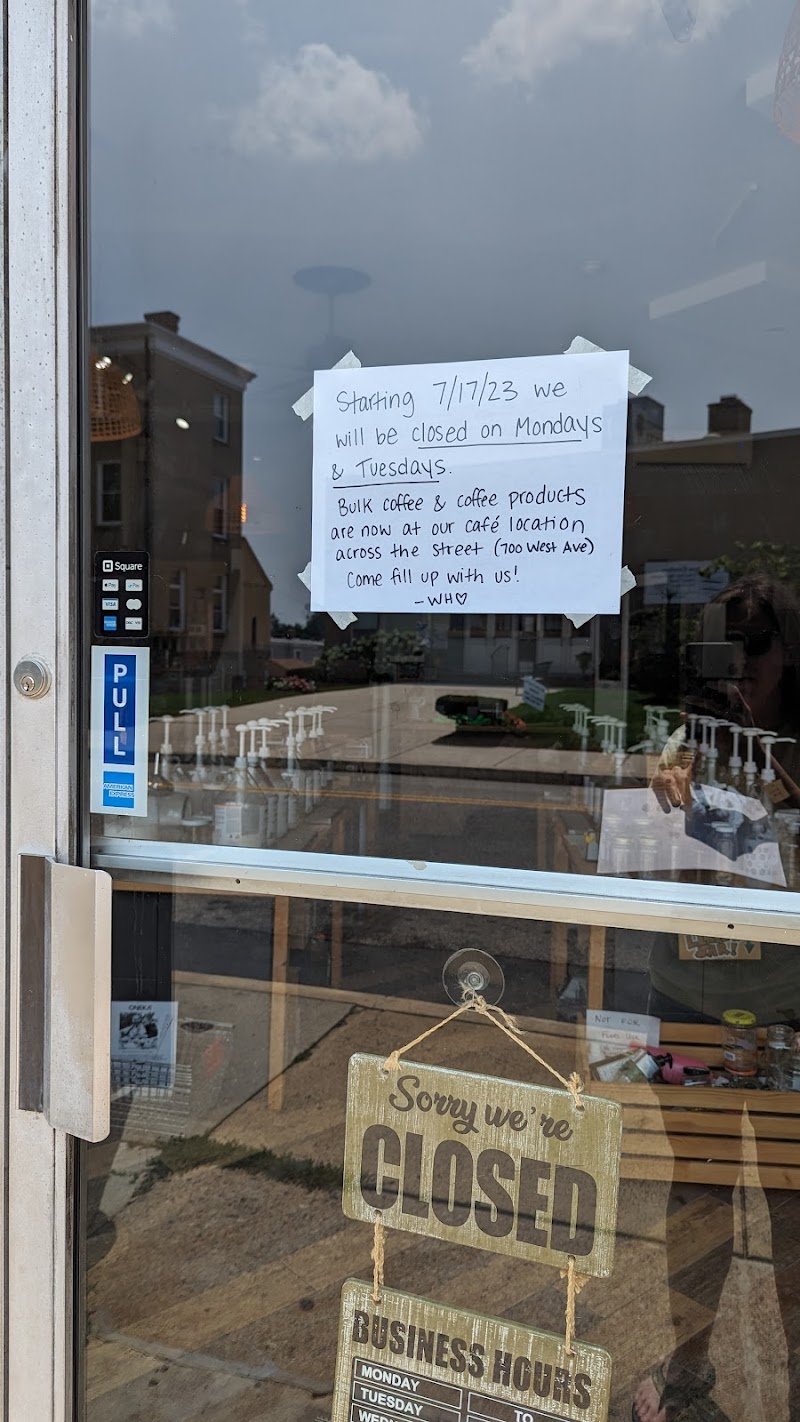 Starting 7/17/23 we
will be closed on Mondays
& Tuesdays.
Bulk coffee & coffee products
are now at our café location
across the street (700 West Ave)
Come fill up with us!
- WH♡
Square
Pay
Pay
VISA
PULL
AMERICAN
EXPRESS
NOT FOR
Sorry we're
CLOSED
BUSINESS HOURS
MONDAY
TO
TUESDAY